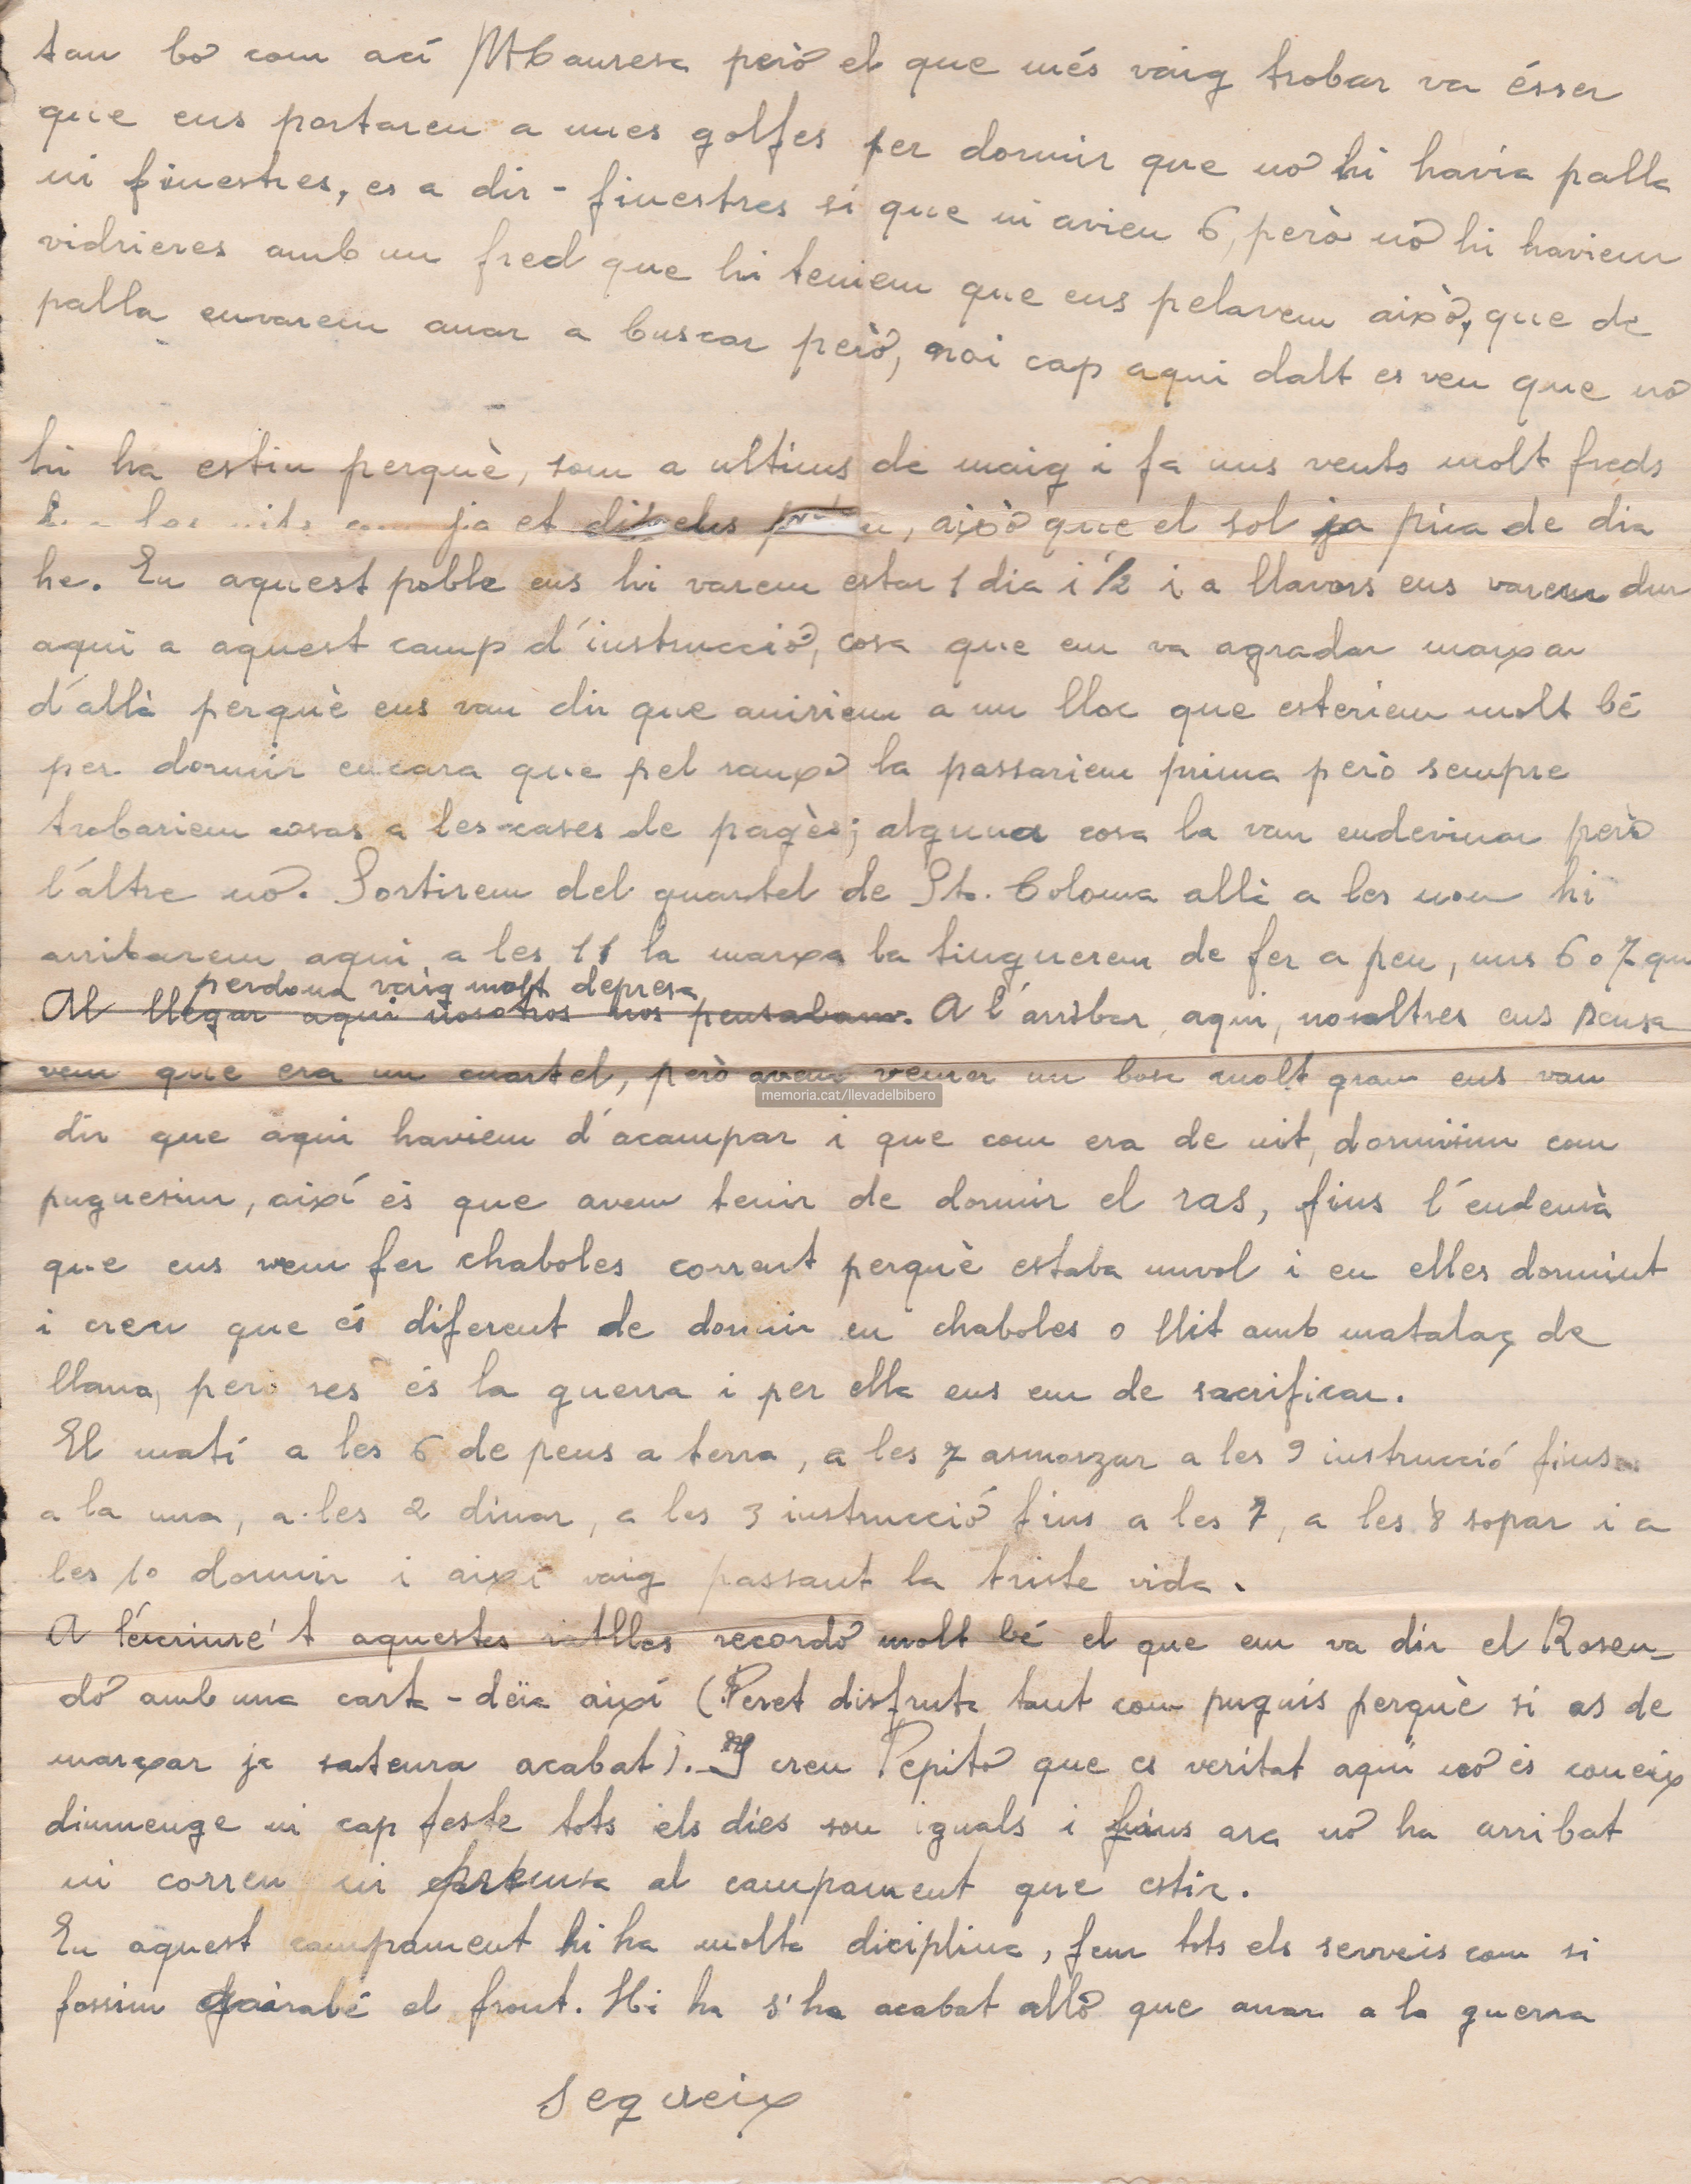 tan bo com ací Manresa però el que més vaig trobar va ésser
que ens portaren a unes golfes per dormir que nó hi havia palla
ni finestres, es a dir - finestres sí que ni avien 6, però nó hi haviem
vidrieres amb un fred que hi teniem que ens pelavem això, que de
palla envarem anar a buscar però, noi cap aqui dalt es veu que nó
hi ha estiu perquè, som a ultims de maig i fa uns vents molt freds
a les nits ja et, això que el sol ja pica de dia
he. En aquest poble ens hi varem estar 1 dia i 1/2 i a llavors ens varem dur
aqui a aquest camp d'instrucció, cosa que em va agradar marxar
d'allà perquè ens van dir que aniriem a un lloc que esteriem molt bé
per dormir encara que pel ranxo la passariem prima però sempre
trobariem cosas a les cases de pagès; alguna cosa la van endevinar però
l'altre nó. Sortirem del quartel de Sta. Coloma allà a les nou hi
arribarem aqui a les 11 la marxa la tinguerem de fer a peu, uns 6 o 7 qm
perdona vaig molt depresa
Al llegar aqui nosotros nos pensabam. A l'arribar aqui, nosaltres ens pensa
vem que era un cuartel, però avem veurer un bosc molt gran ens van
dir que aqui haviem d'acampar i que com era de nit, dormisim com
puguesim, aixi és que avem tenir de dormir el ras, fins l'endemà
que ens vem fer chaboles corrent perquè estaba nuvol i en elles dormint
i creu que és diferent de dormir en chaboles o llit amb matalaç de
llana, pero res és la guerra i per ella ens em de sacrificar.
El matí a les 6 de peus a terra, a les 7 asmorzar a les 9 instrucció fins
a la una, a les 2 dinar, a les 3 instrucció fins a les 7, a les 8 sopar i a
les 10 dormir i aixi vaig passant la triste vida.
A l'éscriure't aquestes ratlles recordó molt bé el que em va dir el Rosen-
dó amb una carta - dëia aixi (Peret disfruta tant com puguis perquè si as de
marxar ja sateura acabat). I creu Pepitó que es veritat aqui nó és coneix
diumenge ni cap feste tots els dies son iguals i fins ara nó ha arribat
ni correu ni prensa al campament que estic.
En aquest campament hi ha molta diciplina, fem tots els serveis com si
fossim gairabé el front. Hi ha s'ha acabat allò que anar a la guerra
segueix
memoria.cat/llevadelbibero